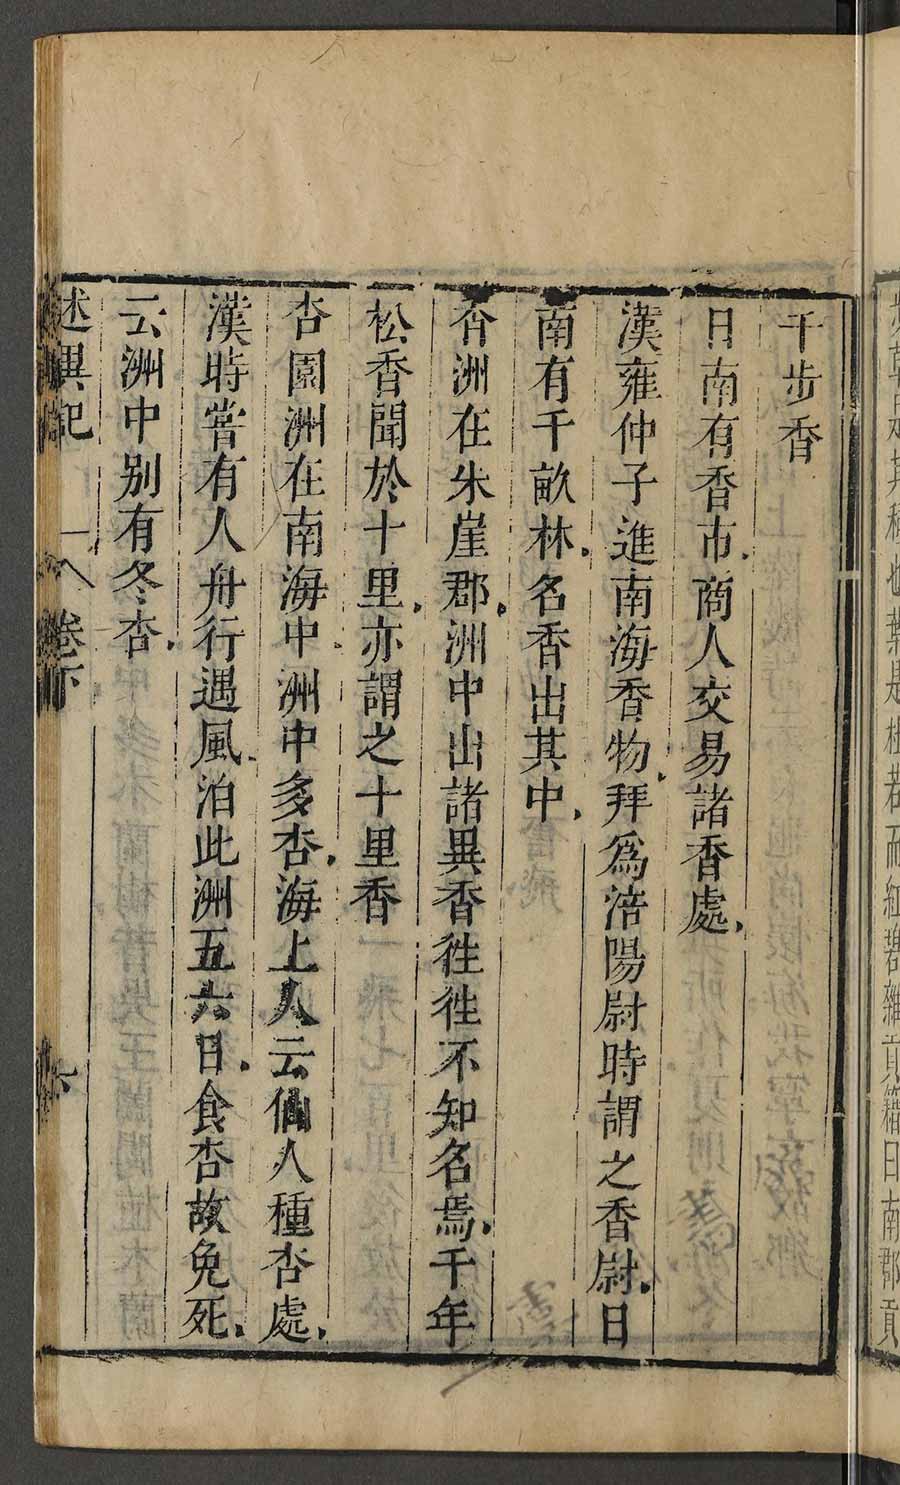 千步香
日南有香市商人交易諸香處
漢雍仲子進南海香物拜爲涪陽尉時謂之香尉日
南有千畝林名香出其中
香洲在朱崖郡洲中出諸異香徃徃不知名焉千年
松香聞於十里亦謂之十里香
杏園洲在南海中洲中多杏海上人云仙人種杏處
漢時嘗有人舟行遇風泊此洲五六日食杏故免死
云洲中别有冬杏
述異記 卷下 六